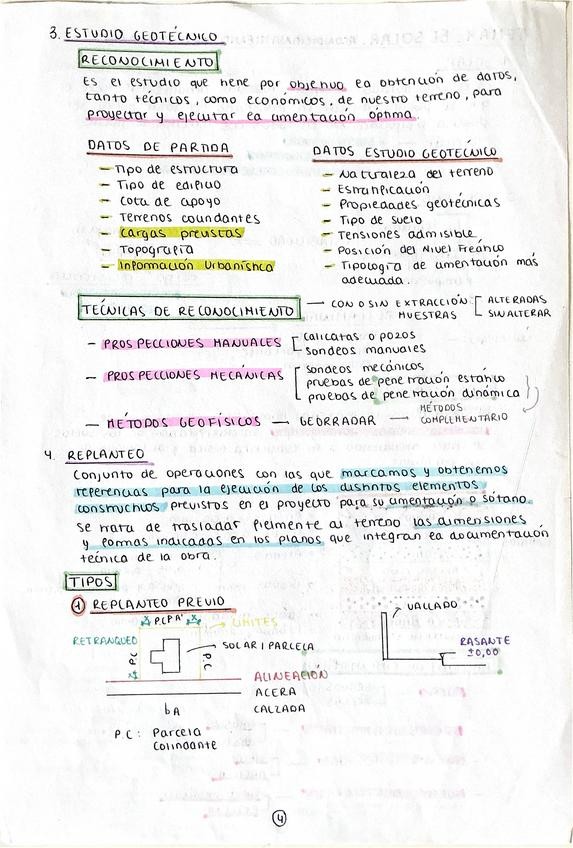 3. ESTUDIO GEOTÉCNICO
RECONOCIMIENTO
Es el estudio que tiene por objetivo la obtención de datos,
tanto técnicos, como económicos, de nuestro terreno, para
proyectar y ejecutar la cimentación óptima.
DATOS DE PARTIDA
- Tipo de estructura
- Tipo de edificio
- Cota de apoyo
- Terrenos colindantes
- Cargas previstas
- Topografía
- Información Urbanística
DATOS ESTUDIO GEOTÉCNICO
- Naturaleza del terreno
- Estratificación
- Propiedades geotécnicas
- Tipo de suelo
- Tensiones admisible
- Posición del Nivel Freático
- Tipología de cimentación más
adecuada.
TÉCNICAS DE RECONOCIMIENTO — CON O SIN EXTRACCIÓN MUESTRAS [ ALTERADAS
SIN ALTERAR
- PROSPECCIONES MANUALES [ calicatas o pozos
sondeos manuales
- PROSPECCIONES MECÁNICAS [ sondeos mecánicos
pruebas de penetración estático
pruebas de penetración dinámica
- MÉTODOS GEOFÍSICOS — GEORRADAR — MÉTODOS
COMPLEMENTARIO
4. REPLANTEO
Conjunto de operaciones con las que marcamos y obtenemos
referencias para la ejecución de los distintos elementos
constructivos previstos en el proyecto para su cimentación o sótano.
Se trata de trasladar fielmente al terreno las dimensiones
y formas indicadas en los planos que integran la documentación
técnica de la obra.
TIPOS
1 REPLANTEO PREVIO
P.C P A'
LÍMITES
RETRANQUEO
P.C
P.C
SOLAR / PARCELA
ALINEACIÓN
ACERA
CALZADA
bA
P.C: Parcela
Colindante
VALLADO
RASANTE
±0,00
4